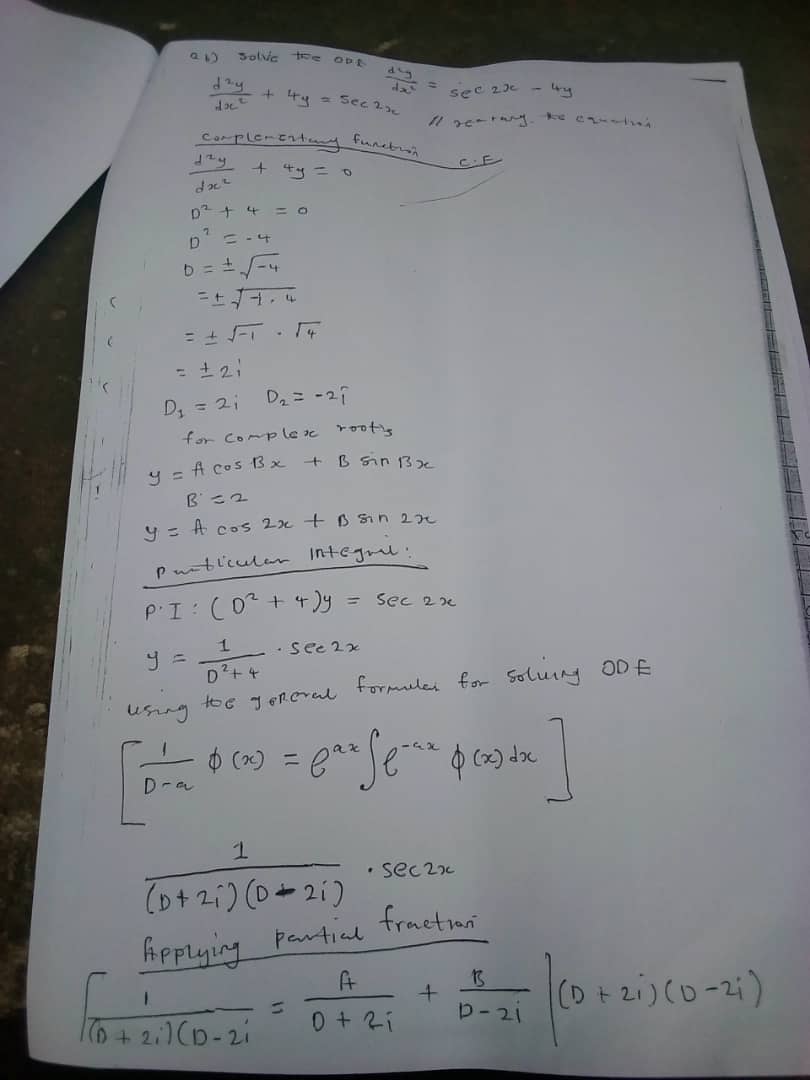 2b) Solve the ODE d²y/dx² = sec 2x - 4y
d²y/dx² + 4y = sec 2x // rearrang. the equation
Complementary function C.F
d²y/dx² + 4y = 0
D² + 4 = 0
D² = -4
D = ± √-4
= ± √-1 . 4
= ± √-1 . √4
= ± 2i
D₁ = 2i D₂ = -2i
for complex roots
y = A cos Bx + B sin Bx
B = 2
y = A cos 2x + B sin 2x
particular Integral:
P.I : (D² + 4)y = sec 2x
y = 1/(D² + 4) . sec 2x
using the general formular for solving ODE
[1/(D-a) ϕ(x) = e^{ax} ∫ e^{-ax} ϕ(x) dx]
1/((D + 2i)(D - 2i)) . sec 2x
Applying partial fraction
[1/((D + 2i)(D - 2i) = A/(D + 2i) + B/(D - 2i) | (D + 2i)(D - 2i)